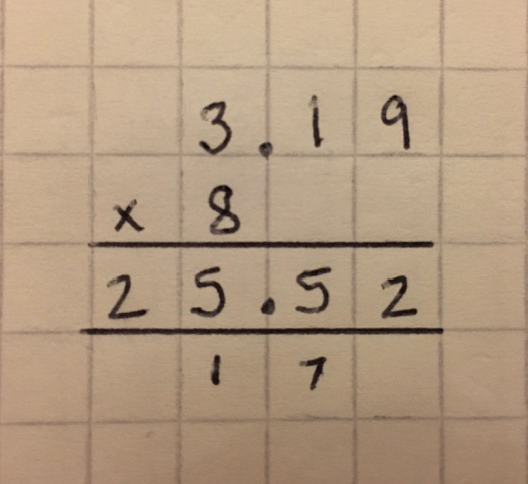 3.19
x 8
25.52
1 7